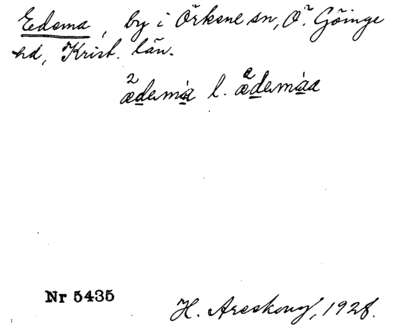 Eedema, by i Örkene sn, Ö. Göinge
hd, Krist. län.
2 ædema l. 2 ædemaa
Nr 5435
H. Areskoug, 1928.